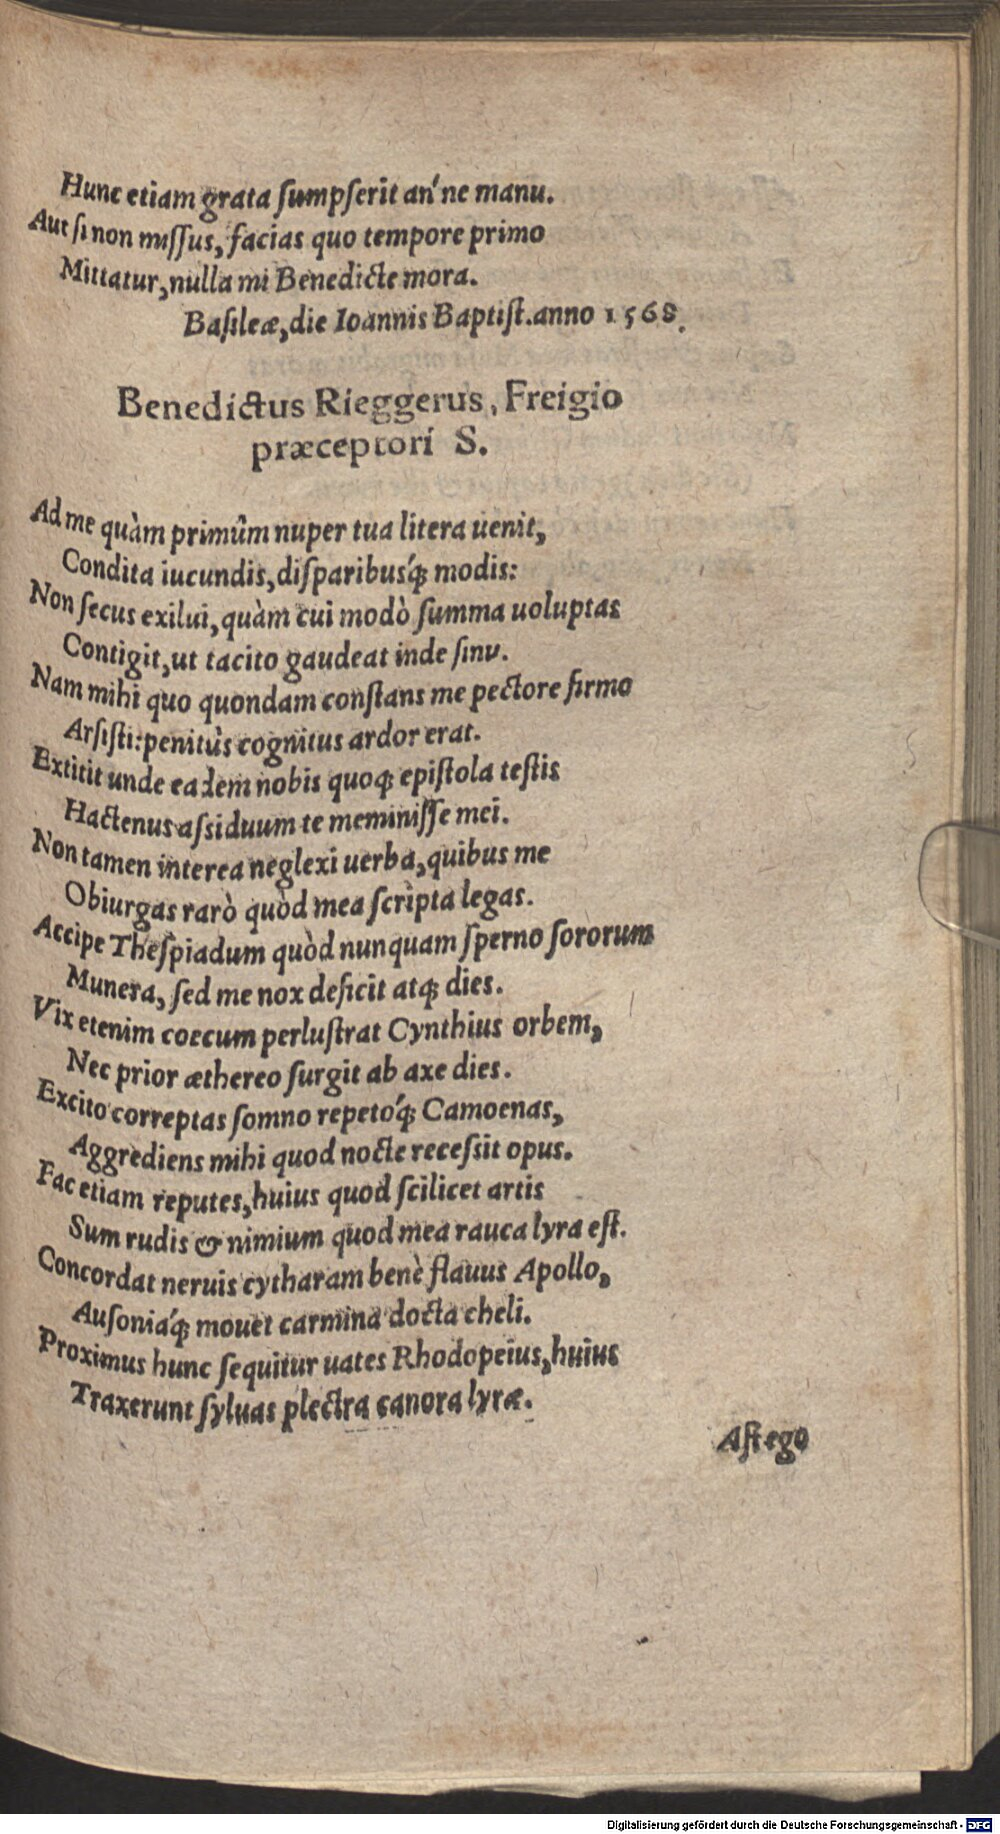 Hunc etiam grata ſumpſerit an' ne manu.
Aut ſi non miſſus, facias quo tempore primo
Mittatur, nulla mi Benedicte mora.
Baſileæ, die Ioannis Baptiſt. anno 1568.
Benedictus Rieggerus, Freigio
præceptori S.
Ad me quàm primûm nuper tua litera uenit,
Condita iucundis, diſparibusq́ꝫ modis:
Non ſecus exilui, quàm cui modò ſumma uoluptas
Contigit, ut tacito gaudeat inde ſinu.
Nam mihi quo quondam conſtans me pectore firmo
Arſiſti: penitùs cognitus ardor erat.
Extitit unde eadem nobis quoqꝫ epiſtola teſtis
Hactenus aſsiduum te meminiſſe mei.
Non tamen interea neglexi uerba, quibus me
Obiurgas rarò quòd mea ſcripta legas.
Accipe Theſpiadum quòd nunquam ſperno ſororum
Munera, ſed me nox deficit atqꝫ dies.
Vix etenim coecum perluſtrat Cynthius orbem,
Nec prior æthereo ſurgit ab axe dies.
Excito correptas ſomno repetoq́ꝫ Camoenas,
Aggrediens mihi quod nocte receſsit opus.
Fac etiam reputes, huius quod ſcilicet artis
Sum rudis & nimium quod mea rauca lyra eſt.
Concordat neruis cytharam benè flauus Apollo,
Auſoniaq́ꝫ mouet carmina docta cheli.
Proximus hunc ſequitur uates Rhodopeius, huius
Traxerunt ſyluas plectra canora lyræ.
Aſt ego
Digitalisierung gefördert durch die Deutsche Forschungsgemeinschaft - DFG